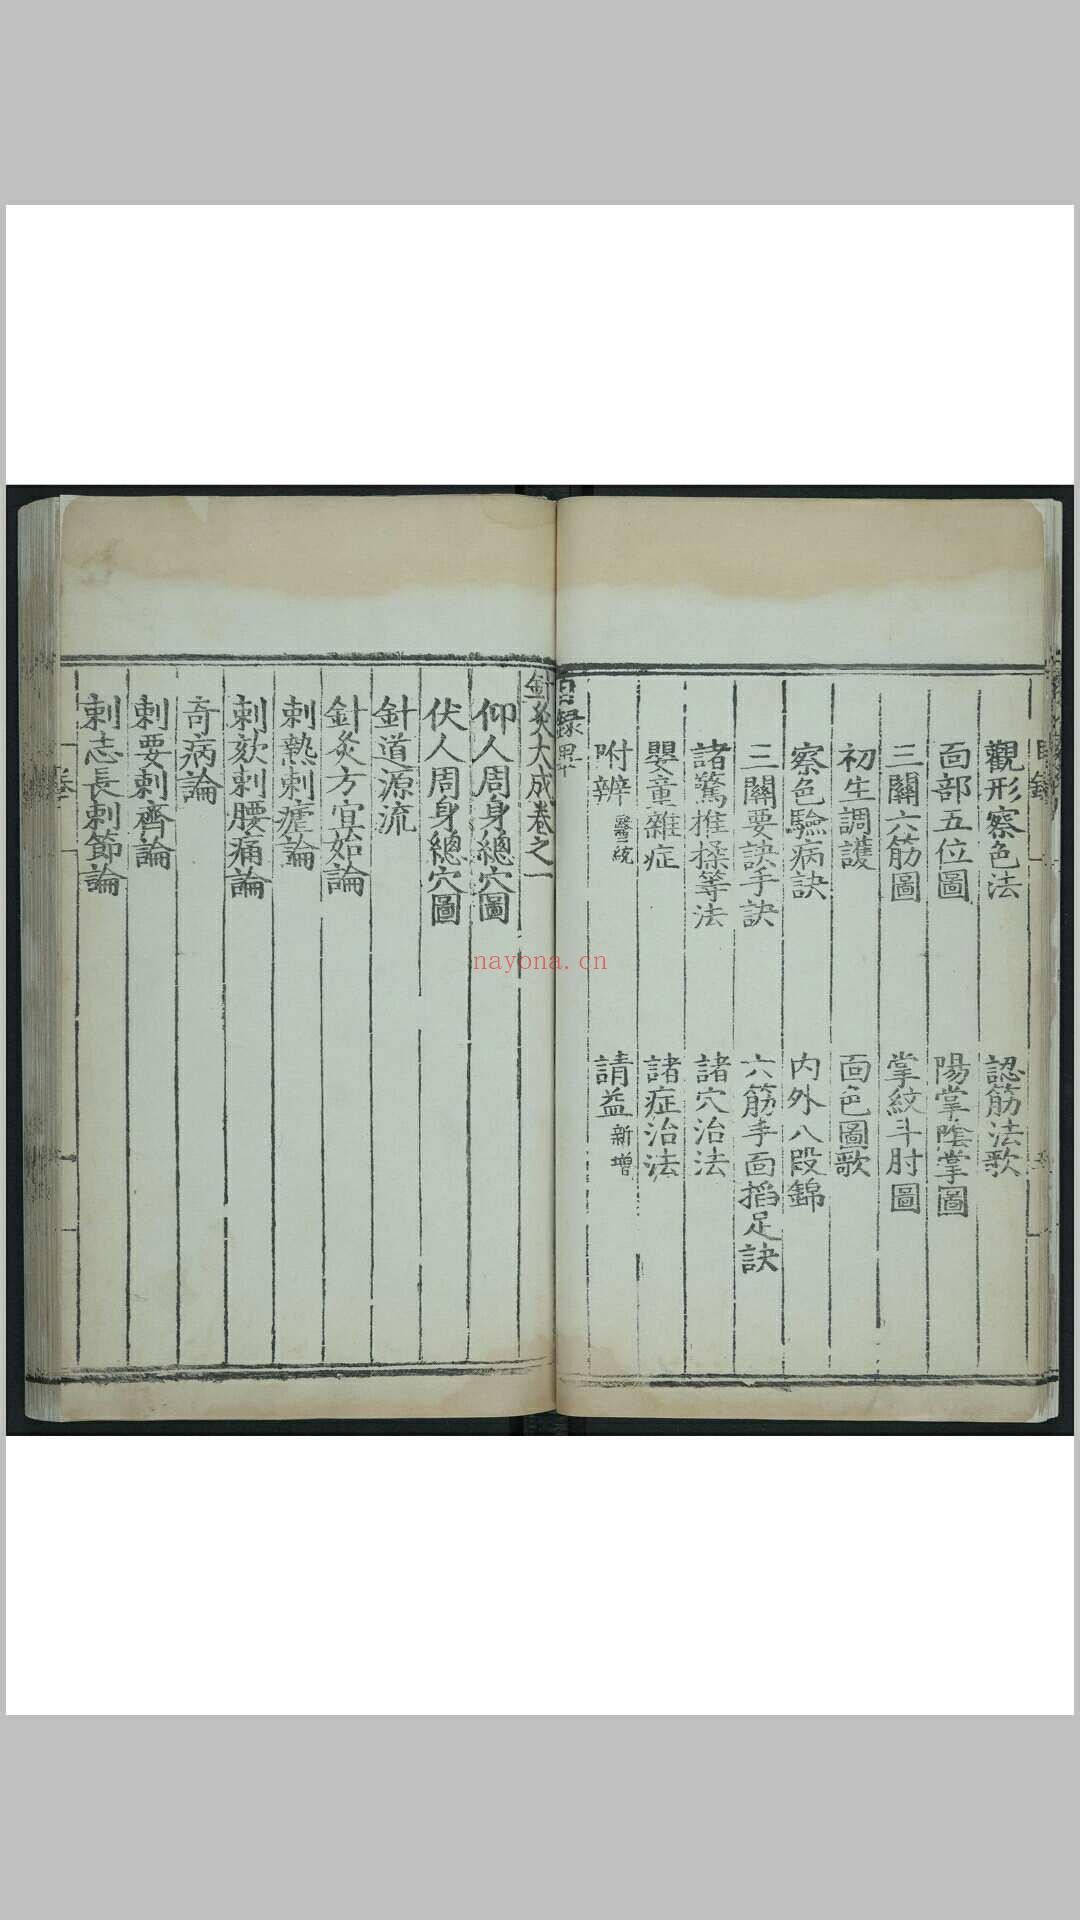 觀形察色法 認筋法歌
面部五位圖 陽掌陰掌圖
三關六筋圖 掌紋斗肘圖
初生調護 面色圖歌
察色驗病訣 内外八段錦
三關要訣手訣 六筋手面掐足訣
諸驚推揉等法 諸穴治法
嬰童雜症 諸症治法
附辨醫統 請益新增
目録
針灸大成卷之一
仰人周身總穴圖
伏人周身總穴圖
針道源流
針灸方宜始論
刺熱刺瘧論
刺欬刺腰痛論
奇病論
刺要刺齊論
刺志長刺節論
nayona.cn